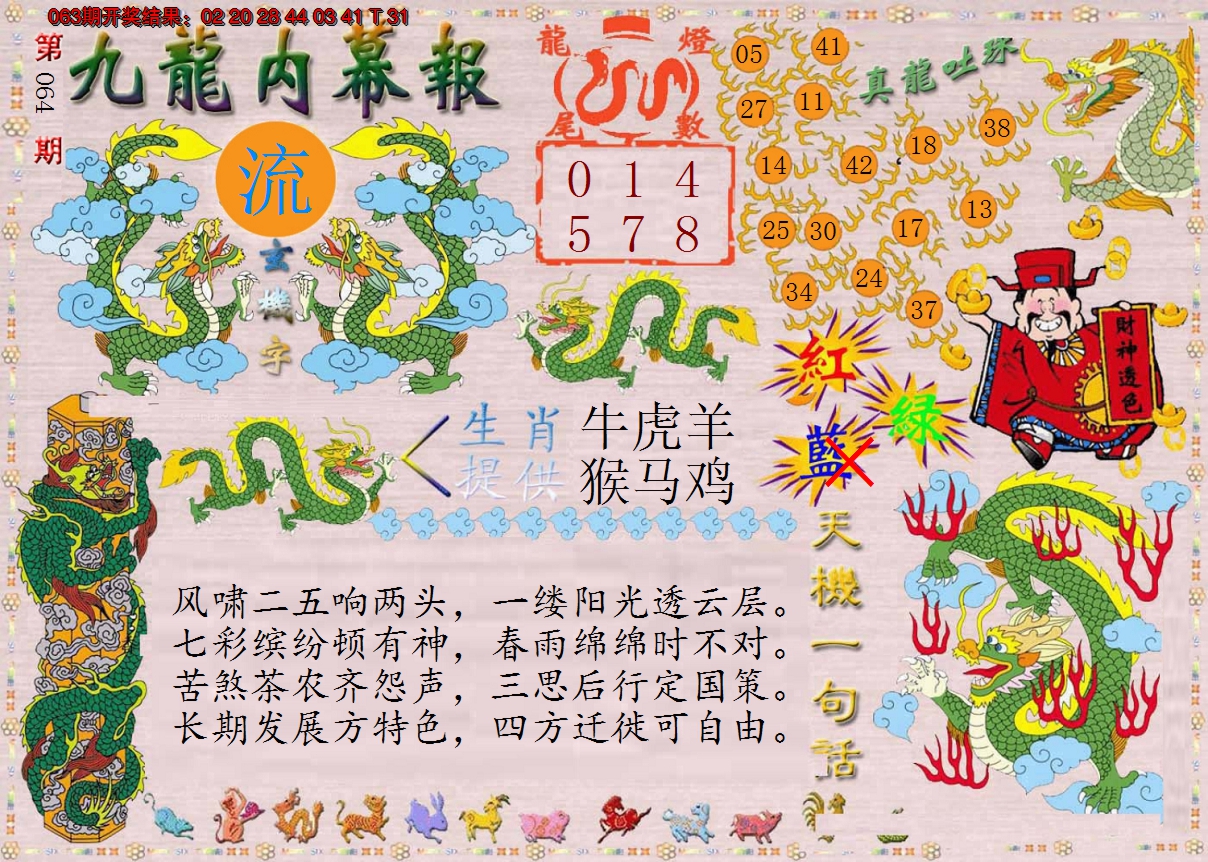 063期开奖结果：02 20 28 44 03 41 T 31
第064期
九龍内幕報
龍燈尾數
0 1 4
5 7 8
流
玄機字
真龍吐珠
05 41
27 11
14 42 18 38
25 30 17 13
34 24 37
紅
綠
藍
財神透色
生肖提供
牛虎羊
猴马鸡
风啸二五响两头，一缕阳光透云层。
七彩缤纷顿有神，春雨绵绵时不对。
苦煞茶农齐怨声，三思后行定国策。
长期发展方特色，四方迁徙可自由。
天機一句話